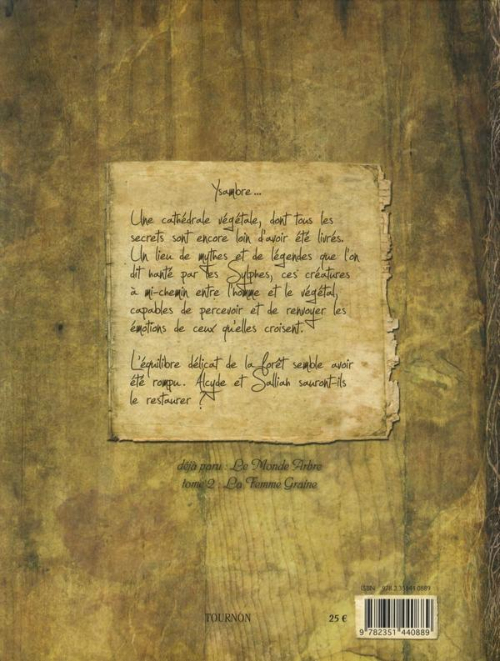 Ysambre...
Une cathédrale végétale, dont tous les
secrets sont encore loin d'avoir été livrés.
Un lieu de mythes et de légendes que l'on
dit hanté par les Sylphes, ces créatures
à mi-chemin entre l'homme et le végétal,
capables de percevoir et de renvoyer les
émotions de ceux qu'elles croisent.
L'équilibre délicat de la forêt semble avoir
été rompu. Alcyde et Salliah sauront-ils
le restaurer ?
déjà paru : Le Monde Arbre
tome 2 : La Femme Graine
ISBN : 978.2.35144.088.9
TOURNON
25 €
9 782351 440889